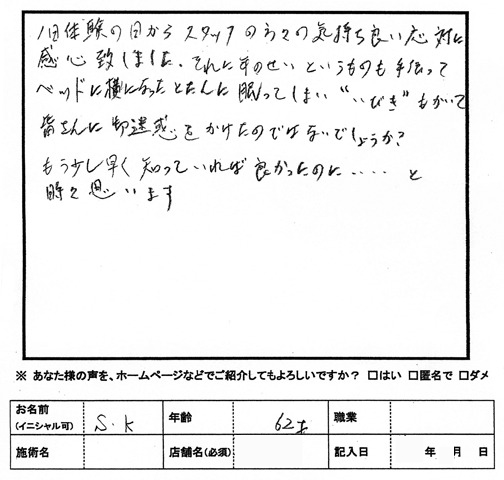 1日体験の日からスタッフの方々の気持ち良い応対に
感心致しました。それに年のせいというものも手伝って
ベッドに横になったとたんに眠ってしまい"いびき"もかいて
皆さんに御迷惑をかけたのではないでしょうか?
もう少し早く知っていれば良かったのに・・・・と
時々思います
※ あなた様の声を、ホームページなどでご紹介してもよろしいですか? □はい □匿名で □ダメ
お名前(イニシャル可) S.K 年齢 62才 職業
施術名 店舗名(必須) 記入日 年 月 日